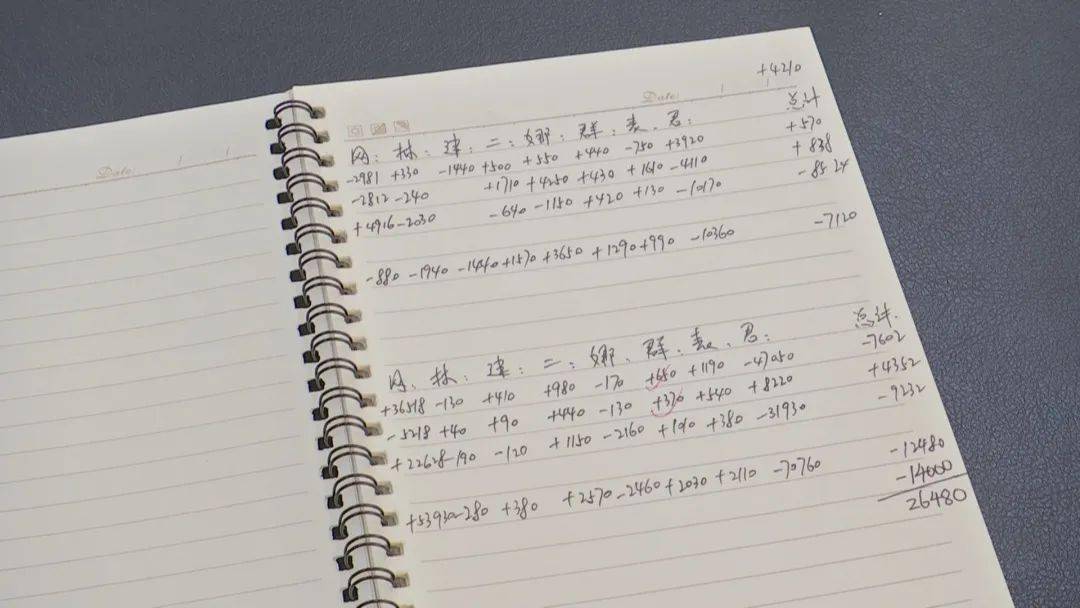 Date:
+4210
Date:
网: 林: 建: 二: 娜: 群: 表. 君: 总计
-2981 +330 -1440 +500 +550 +440 -750 +3920 +570
-2812 -240 +1710 +4250 +430 +1610 -4110 +838
+4916 -2030 -640 -1150 +420 +130 -10170 -8524
-880 -1940 -1440 +1570 +3650 +1290 +990 -10360 -7120
林. 建: 二: 娜. 群. 表. 君: 总计.
+36518 -130 +410 +980 -170 +650 +1190 -47050 -7602
-5218 +40 +90 +440 -130 +370 +540 +8220 +4352
+22628 -190 -120 +1150 -2160 +380 -31930 -9232
-280 +380 +2570 -2460 +2030 +2110 -70760 -12480
-14000
26480